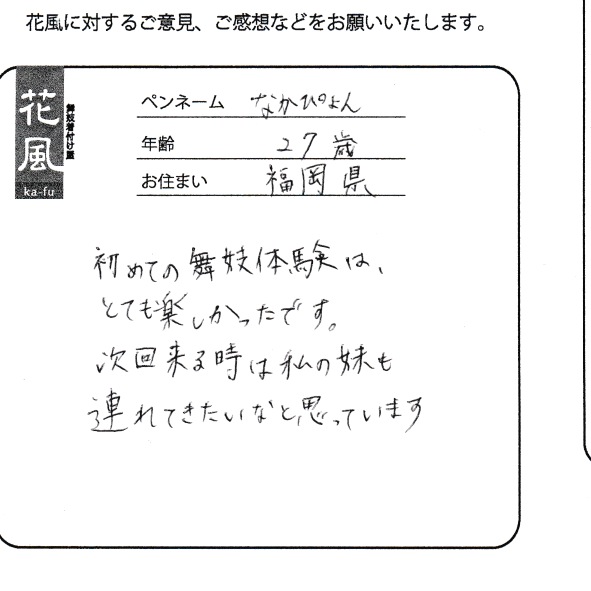 花風に対するご意見、ご感想などをお願いいたします。
花風
舞妓着付け屋
ka-fu
ペンネーム なかぴょん
年齢 27歳
お住まい 福岡県
初めての舞妓体験は、
とても楽しかったです。
次回来る時は私の妹も
連れてきたいなと思っています